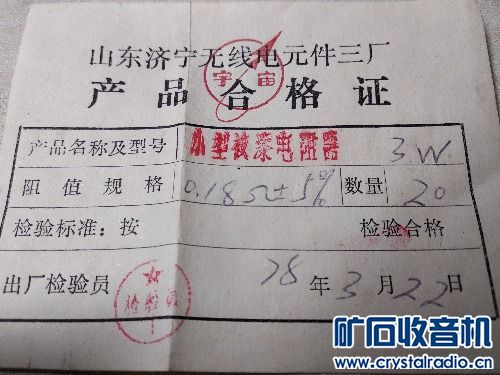 山东济宁无线电元件三厂
宇宙
产品合格证
产品名称及型号 小型被漆电阻器 3W
阻值规格 0.18Ω±5% 数量 20
检验标准：按 检验合格
出厂检验员 检验员 1 78年3月22日
矿石收音机
www.crystalradio.cn